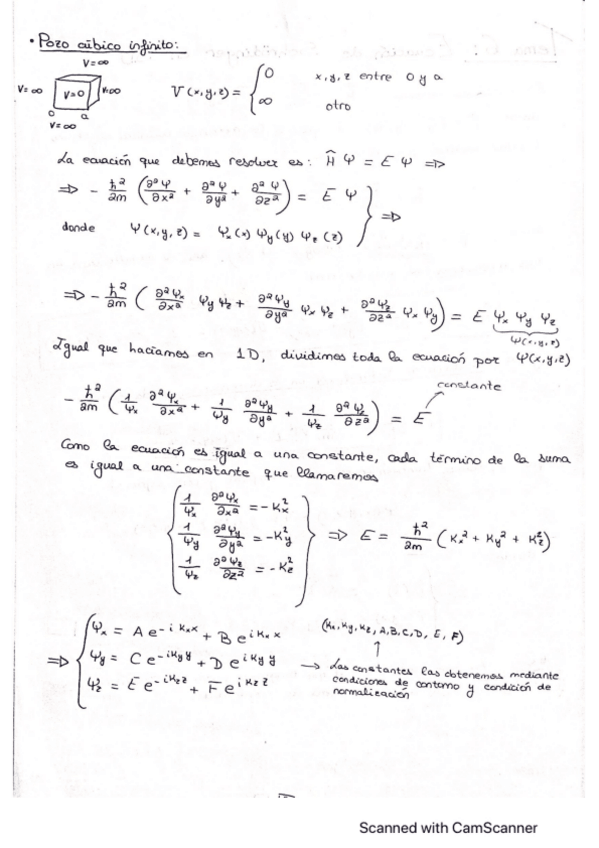 • Pozo cúbico infinito:
V=∞
V=∞ V=0 V=∞
0 a
V=∞
V(x,y,z) = { 0 x,y,z entre 0 y a
∞ otro
La ecuación que debemos resolver es: Ĥ Ψ = E Ψ ⇒
⇒ - ħ²/2m (∂²Ψ/∂x² + ∂²Ψ/∂y² + ∂²Ψ/∂z²) = E Ψ } ⇒
donde Ψ(x,y,z) = Ψx(x) Ψy(y) Ψz(z)
⇒ - ħ²/2m (∂²Ψx/∂x² Ψy Ψz + ∂²Ψy/∂y² Ψx Ψz + ∂²Ψz/∂z² Ψx Ψy) = E Ψx Ψy Ψz
Ψ(x,y,z)
Igual que hacíamos en 1D, dividimos toda la ecuación por Ψ(x,y,z)
constante
- ħ²/2m (1/Ψx ∂²Ψx/∂x² + 1/Ψy ∂²Ψy/∂y² + 1/Ψz ∂²Ψz/∂z²) = E
Como la ecuación es igual a una constante, cada término de la suma
es igual a una constante que llamaremos
{ 1/Ψx ∂²Ψx/∂x² = -Kx²
1/Ψy ∂²Ψy/∂y² = -Ky² } ⇒ E = ħ²/2m (Kx² + Ky² + Kz²)
1/Ψz ∂²Ψz/∂z² = -Kz²
⇒ { Ψx = A e^(-i Kx x) + B e^(i Kx x)
Ψy = C e^(-i Ky y) + D e^(i Ky y)
Ψz = E e^(-i Kz z) + F e^(i Kz z)
(Kx, Ky, Kz, A, B, C, D, E, F)
↑
→ Las constantes las obtenemos mediante
condiciones de contorno y condición de
normalización
Scanned with CamScanner